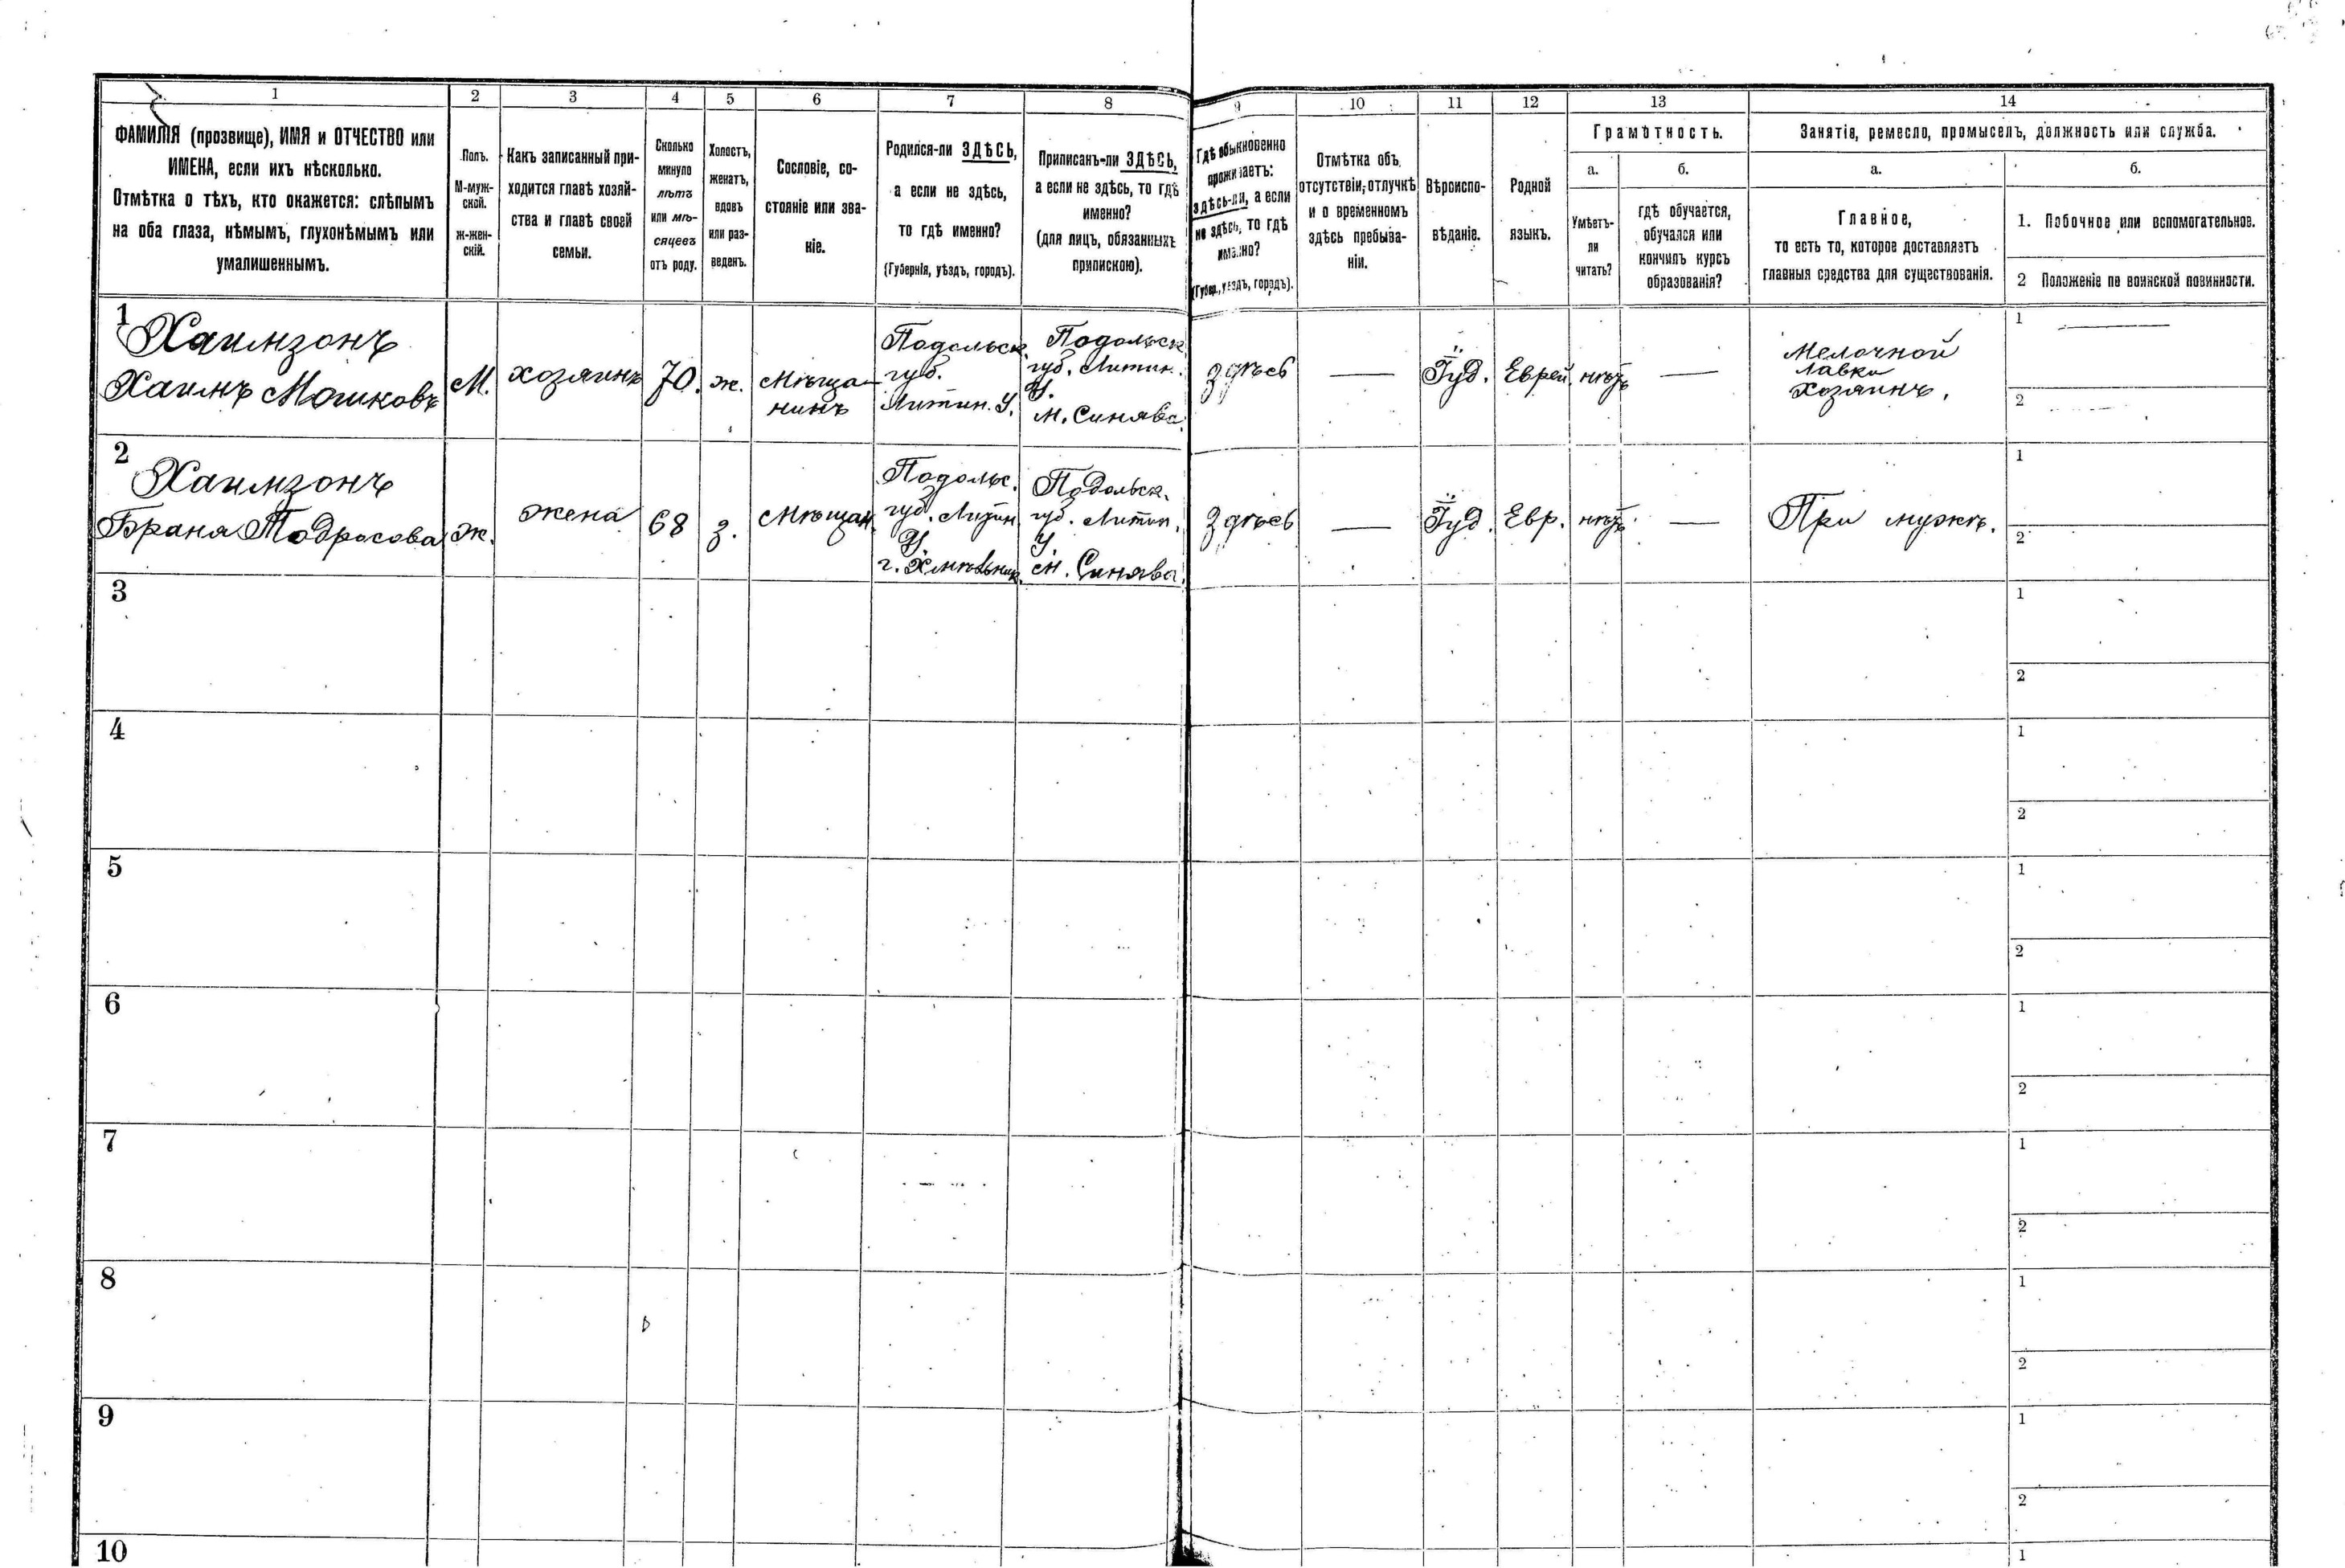 1
2
3
4
5
6
7
8
9
10
11
12
13
14
ФАМИЛІЯ (прозвище), ИМЯ и ОТЧЕСТВО или
ИМЕНА, если ихъ нѣсколько.
Отмѣтка о тѣхъ, кто окажется: слѣпымъ
на оба глаза, нѣмымъ, глухонѣмымъ или
умалишеннымъ.
Полъ.
М-муж-
ской.
ж-жен-
скій.
Какъ записанный при-
ходится главѣ хозяй-
ства и главѣ своей
семьи.
Сколько
минуло
лѣтъ
или мѣ-
сяцевъ
отъ роду.
Холостъ,
женатъ,
вдовъ
или раз-
веденъ.
Сословіе, со-
стояніе или зва-
ніе.
Родился-ли ЗДѢСЬ,
а если не здѣсь,
то гдѣ именно?
(Губернія, уѣздъ, городъ).
Приписанъ-ли ЗДѢСЬ,
а если не здѣсь, то гдѣ
именно?
(для лицъ, обязанныхъ
припискою).
Гдѣ обыкновенно
проживаетъ:
здѣсь-ли, а если
не здѣсь, то гдѣ
именно?
(Губер., уѣздъ, городъ).
Отмѣтка объ
отсутствіи, отлучкѣ
и о временномъ
здѣсь пребыва-
ніи.
Вѣроиспо-
вѣданіе.
Родной
языкъ.
Грамѣтность.
а.
Умѣетъ-
ли
читать?
б.
гдѣ обучается,
обучался или
кончилъ курсъ
образованія?
Занятіе, ремесло, промыселъ, должность или служба.
а.
Главное,
то есть то, которое доставляетъ
главныя средства для существованія.
б.
1. Побочное или вспомогательное.
2 Положеніе по воинской повинности.
1
Хаимзонъ
Хаимъ Мошковъ
М.
хозяинъ
70.
ж.
Мѣща-
нинъ
Подольск.
губ.
Литин. У.
Подольск
губ. Литин.
У.
м. Синява.
здѣсь
—
Іуд.
Еврей
нѣтъ
—
Мелочной
лавки
Хозяинъ.
1 —
2
2
Хаимзонъ
Браня Тодросова
ж.
жена
68
з.
Мѣщан.
Подольс.
губ. Литин
У.
Подольск.
губ. Литин.
У.
м. Синява.
здѣсь
—
Іуд.
Евр.
нѣтъ
—
При мужѣ.
1
2
3
1
2
4
1
2
5
1
2
6
1
2
7
1
2
8
1
2
9
1
2
10
1